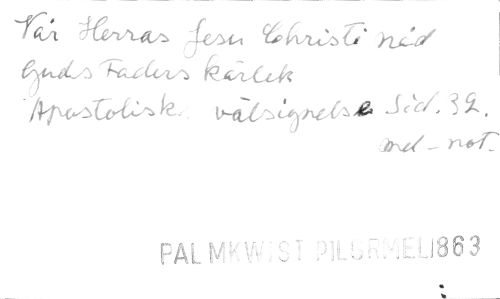 Vår Herras Jesu Christi nåd
Guds Faders kärlek
Apostolisk välsignelse Sid. 39.
med - not.
PALMKWIST PILGRMEL 1863